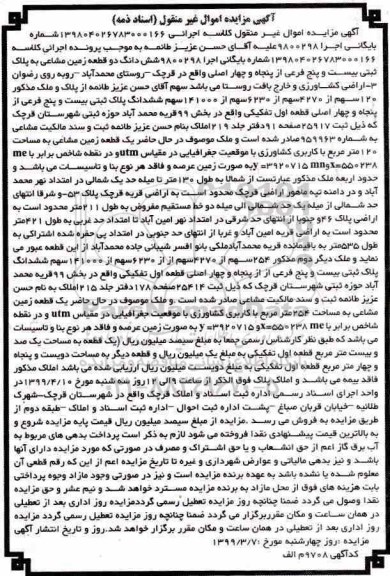 آگهی مزایده اموال غیر منقول (اسناد ذمه)
آگهی مزایده اموال غیر منقول کلاسه اجرائی ۱۳۹۸۰۴۰۲۶۷۸۳۰۰۰۱۶۶ شماره
بایگانی اجرا ۹۸۰۰۲۹۸ علیه آقای حسن عزیز طائمه به موجب پرونده اجرائی کلاسه
۱۳۹۸۰۴۰۲۶۷۸۳۰۰۰۱۶۶ شماره بایگانی اجرا ۹۸۰۰۲۹۸ شش دانگ دو قطعه زمین مشاعی به پلاک
ثبتی بیست و پنج فرعی از پنجاه و چهار اصلی واقع در قرچک – روستای محمدآباد – روبه روی رضوان
۳ – اراضی کشاورزی و خارج بافت روستا – می باشد سهم آقای حسن عزیز طائمه از پلاک و ملک مذکور
۱۲۰ سهم از ۴۲۷۰ سهم از ۶۲۳۰ سهم از ۱۴۱۰۰۰ سهم ششدانگ پلاک ثبتی بیست و پنج فرعی از
پنجاه و چهار اصلی قطعه اول تفکیکی واقع در بخش ۹۹ قریه محمد آباد حوزه ثبتی شهرستان قرچک
که ذیل ثبت ۲۵۹۱۷ صفحه ۹۱ دفتر جلد ۲۱۹ املاک بنام حسن عزیز طائمه ثبت و سند مالکیت مشاعی
به شماره ۹۵۹۹۶۳ صادر شده است و ملک موصوف در حال حاضر یک قطعه زمین مشاعی به مساحت
۱۲۰ متر مربع با کاربری کشاورزی با موقعیت جغرافیایی در مقیاس utm و در نقطه شاخص برابر با me
x=۵۵۰۲۳۸ و mn y=۳۹۲۰۷۱۵ به صورت زمین عرصه و فاقد هر نوع بنا و تاسیسات می باشد و
حدود اربعه ملک مذکور عبارتست از شمالا به طول ۱۳۰ متر تا میله حد یک شمالی در امتداد نهر محمد
آباد و در دامنه تپه ماهور اراضی قرچک محدود است به اراضی قریه قرچک پلاک ۵۳ – و شرقا انتهای
حد شمالی از میله یک حد شمالی الی میله دو خط مستقیم مفروض به طول ۲۱۱ متر محدود است به
اراضی پلاک ۴۶ جنوبا از انتهای حد شرقی در امتداد نهر امین آباد تا امتداد حد غربی به طول ۴۲۱ متر
محدود است به اراضی قریه امین آباد و غربا از انتهای حد جنوبی در امتداد پی حفره شده اشتراکی به
طول ۵۳۵ متر به باقیمانده قریه محمدآباد ملکی بانو افسر شیبانی جاده محمدآباد از این قطعه عبور می
نماید و ملک دیگر دوم مذکور ۲۵۴ سهم از ۴۲۷۰ سهم از ۶۲۳۰ سهم از ۱۴۱۰۰۰ سهم ششدانگ
پلاک ثبتی بیست و پنج فرعی از پنجاه و چهار اصلی قطعه اول تفکیکی واقع در بخش ۹۹ قریه محمد
آباد حوزه ثبتی شهرستان قرچک که ذیل ثبت ۲۵۴۱۴ صفحه ۱۷۸ دفتر جلد ۲۱۵ املاک به نام حسن
عزیز طائمه ثبت و سند مالکیت مشاعی صادر شده است و ملک موصوف در حال حاضر یک قطعه زمین
مشاعی به مساحت ۲۵۴ متر مربع با کاربری کشاورزی با موقعیت جغرافیایی در مقیاس utm و در نقطه
شاخص برابر با me x=۵۵۰۲۳۸ و y=۳۹۲۰۷۱۵ به صورت زمین عرصه و فاقد هر نوع بنا و تاسیسات
می باشد که طبق نظر کارشناس رسمی جمعا به مبلغ سیصد میلیون ریال (یک قطعه به مساحت یک صد
و بیست متر مربع قطعه اول تفکیکی به مبلغ یک میلیون ریال و قطعه دیگر به مساحت دویست و پنجاه
و چهار متر مربع قطعه اول تفکیکی به مبلغ دویست میلیون ریال ارزیابی شده می باشد املاک مذکور
فاقد بیمه می باشد و املاک پلاک فوق الذکر از ساعت ۹ الی ۱۲ روز سه شنبه مورخ ۱۳۹۹/۴/۱۰ در
واحد اجرای اسناد رسمی اداره ثبت اسناد و املاک قرچک واقع در شهرستان قرچک – شهرک
طلائیه – خیابان قربان صباغ – پشت اداره ثبت احوال – اداره ثبت اسناد و املاک – طبقه دوم از
طریق مزایده به فروش می رسد. مزایده از مبلغ سیصد میلیون ریال قیمت پایه مزایده شروع و
به بالاترین قیمت پیشنهادی نقدا فروخته می شود لازم به ذکر است پرداخت بدهی های مربوط به
آب برق گاز اعم از حق انشعاب و یا حق اشتراک و مصرف در صورتی که مورد مزایده دارای آنها
باشد و نیز بدهی مالیاتی و عوارض شهرداری و غیره تا تاریخ مزایده اعم از این که رقم قطعی آن
معلوم شده یا نشده باشد به عهده برنده مزایده است و نیز در صورتی وجود مازاد وجوه پرداختی
بابت هزینه های فوق از محل مازاد به برنده مزایده مسترد خواهد شد و نیم عشر و حق مزایده
نقدا وصول می گردد ضمنا چنانچه روز مزایده تعطیل رسمی گردد مزایده روز اداری بعد از تعطیلی
در همان ساعت و مکان مقرر برگزار می گردد ضمنا چنانچه روز مزایده تعطیل رسمی گردد مزایده
روز اداری بعد از تعطیلی در همان ساعت و مکان مقرر برگزار خواهد شد. روز و تاریخ انتشار آگهی
مزایده: روز چهارشنبه مورخ: ۱۳۹۹/۳/۷
کدآگهی ۹۷۰۸ م الف